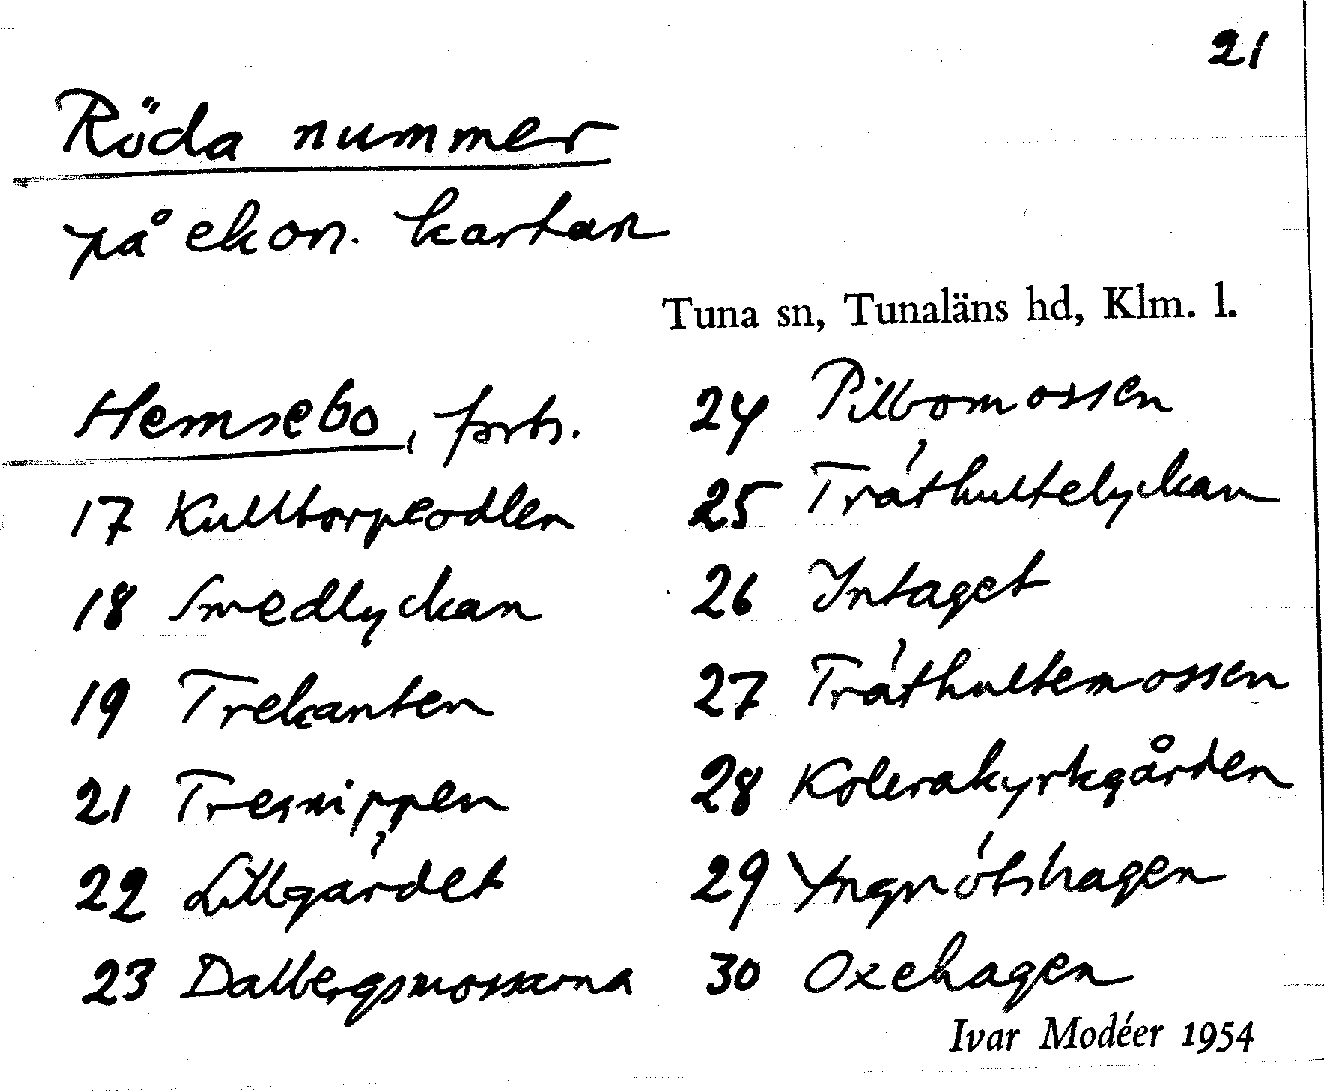 21
Röda nummer
på ekon. kartan
Tuna sn, Tunaläns hd, Klm. l.
Hemsebo, forts.
17 Kulltorpeodlen
18 Smedlyckan
19 Trekanten
21 Tresnippen
22 Lillgärdet
23 Dalbergsmossarna
24 Pilbomossen
25 Tråthultelyckan
26 Intaget
27 Tråthultemossen
28 Kolerakyrkgården
29
30 Oxehagen
Ivar Modéer 1954